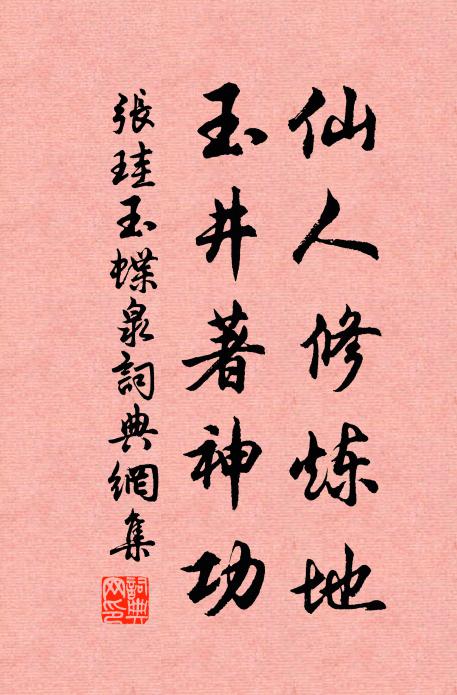 仙人修炼地
玉井著神功
張珪玉蝶泉詞典網集
詞典
网印